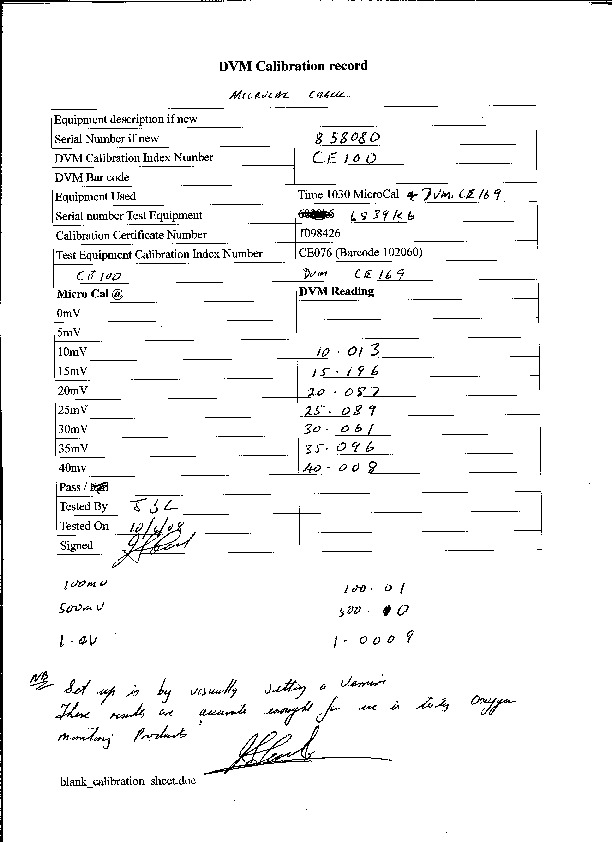 DVM Calibration record
Equipment description if new
Serial Number if new 858080
DVM Calibration Index Number CE100
DVM Bar code
Equipment Used Time 1030 MicroCal + DVM. CE169
Serial number Test Equipment LS39K6
Calibration Certificate Number f098426
Test Equipment Calibration Index Number CE076 (Barcode 102060)
CE100 DVM CE169
Micro Cal @ DVM Reading
0mV
5mV
10mV 10.013
15mV 15.196
20mV 20.087
25mV 25.089
30mV 30.061
35mV 35.096
40mv 40.008
Pass /
Tested By
Tested On 10/6/08
Signed
100mV 100.01
500mV 500.10
1.0V 1.0009
NB Set up is by visually setting a Vernier
These results are accurate enough for use in Oxygen
monitoring Products
blank_calibration sheet.doc